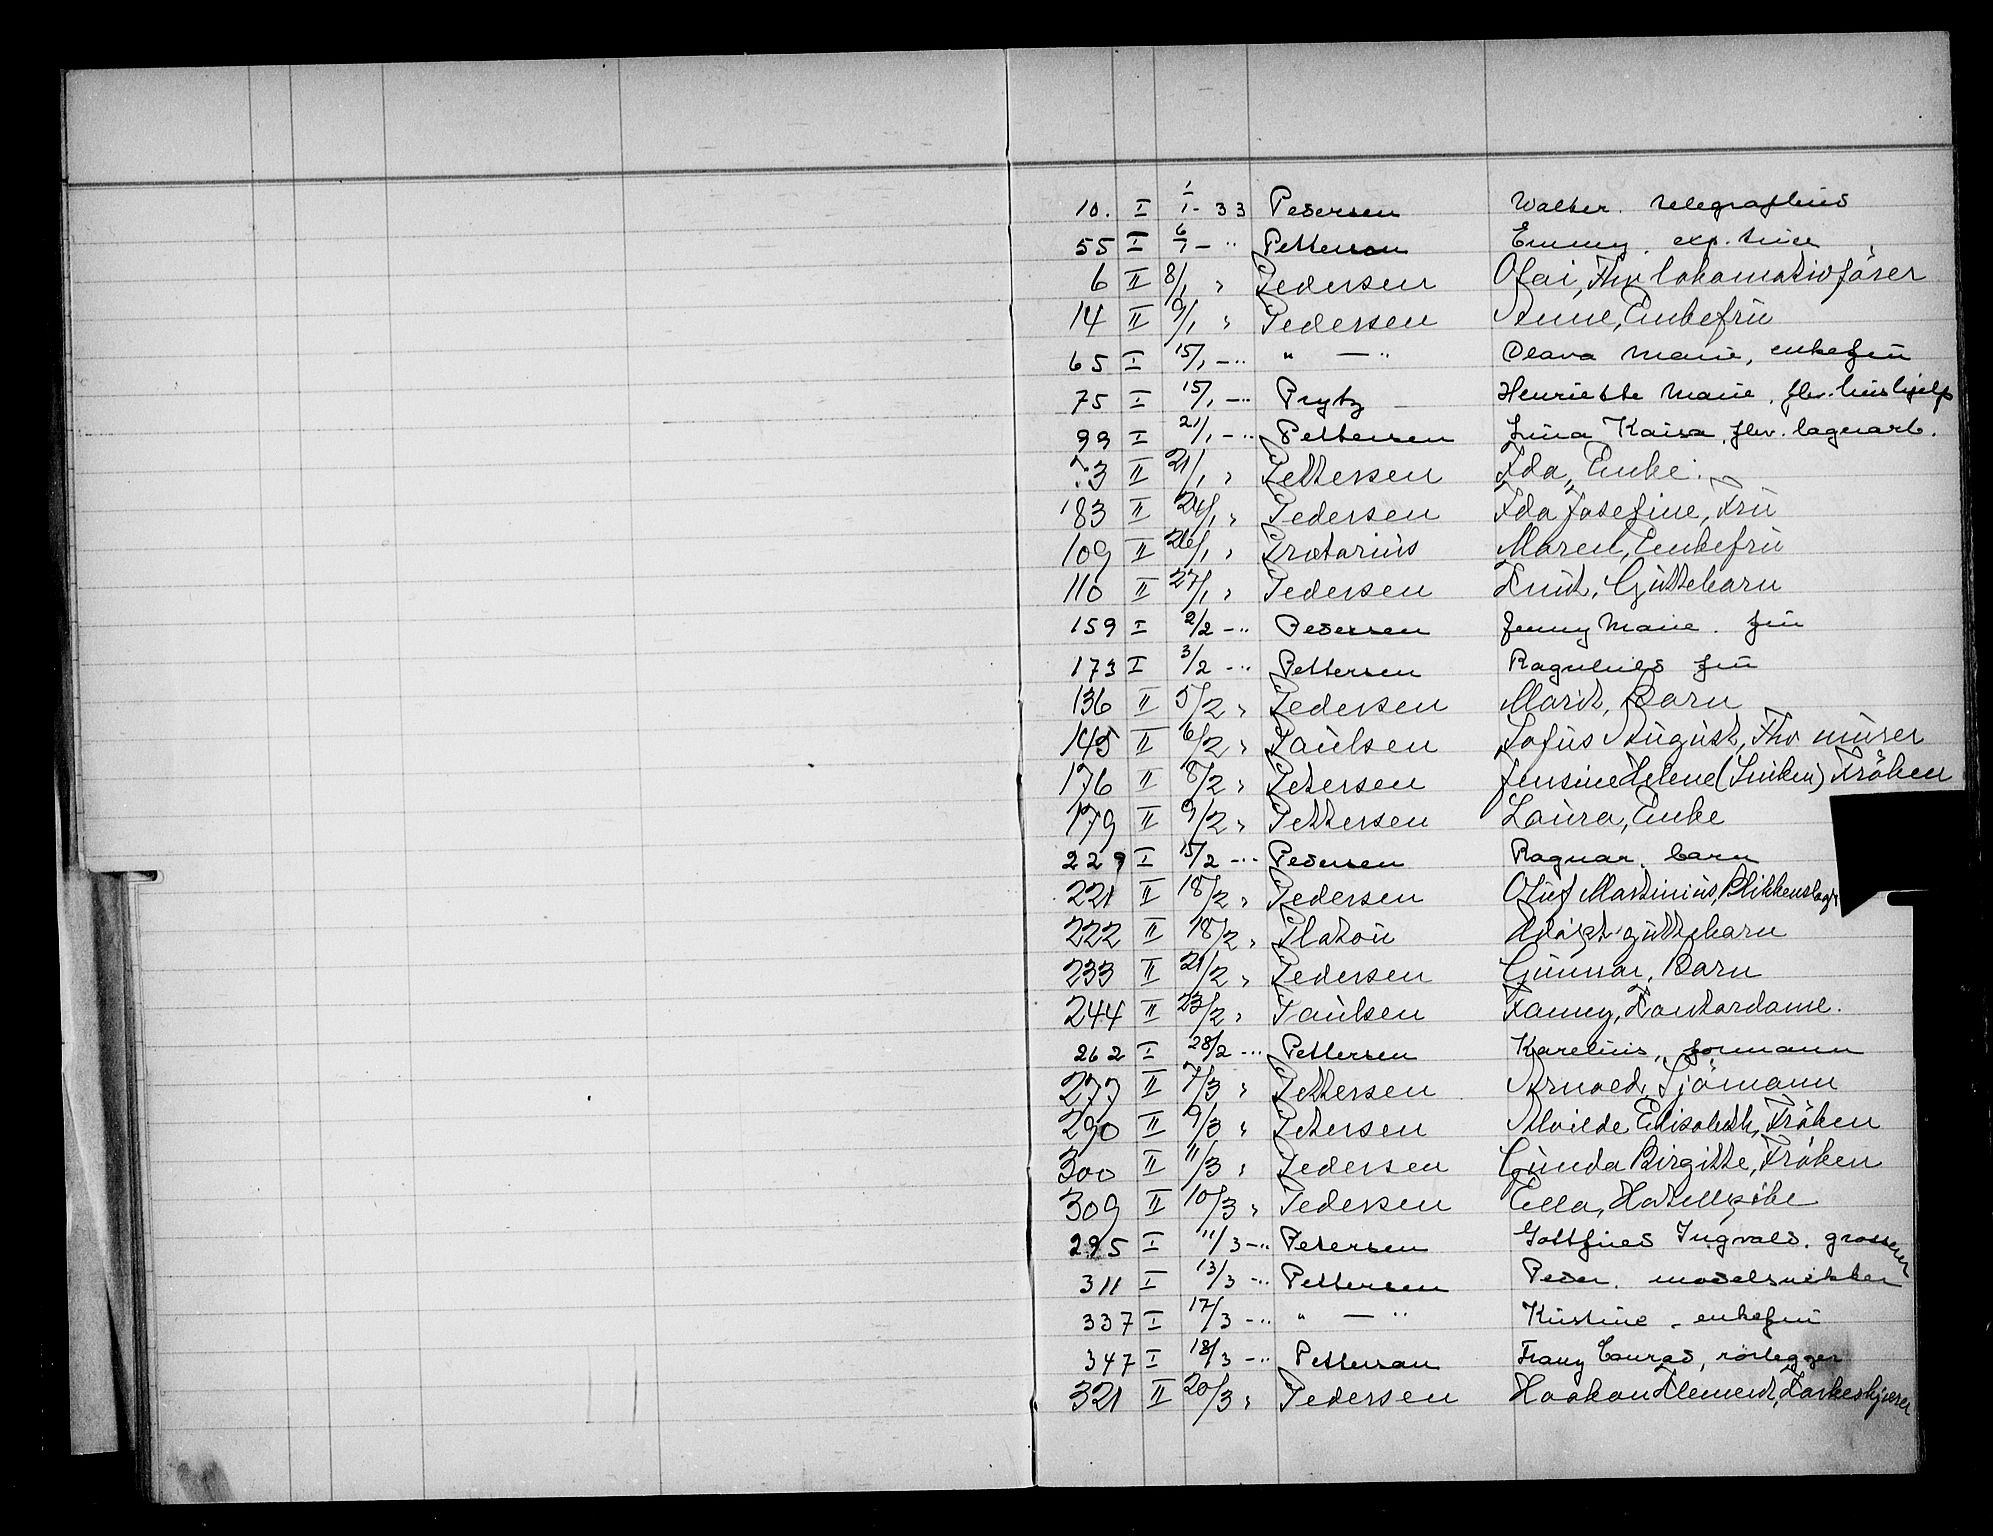 10. I 1/1 - 33 Pedersen Walter. telegrafbud
55 I 6/1 - " Petterson Emmy. exp. trice
6 II 8/1 " Pedersen Olai, Fhv lokomotivförer
14 II 9/1 " Pedersen Anne, Enkefru
65 I 15/1 - " " — " Olava Marie, enkefru
75 I 15/1 - " Prytz Henriette Marie. fhv. hushjelp
99 I 21/1 - " Pettersen Lina Kaisa. fhv. lagerarb.
73 II 21/1 " Pettersen Ida, Enke.
83 II 24/1 " Pedersen Ida Josefine, Fru
109 II 26/1 " Prætorius Maren, Enkefru
110 II 27/1 " Pedersen Knut, Guttebarn
159 I 2/2 - " Pedersen Jenny Marie. fru
173 I 3/2 - " Pettersen Ragnhild fru
136 II 5/2 " Pedersen Marit, Barn
145 II 6/2 " Paulsen Sofus August, Fhv murer
176 II 8/2 " Petersen Jensine Helene Fröken
179 II 9/2 " Pettersen Laura, Enke
229 I 15/2 - " Pedersen Ragnar. barn
221 II 18/2 " Pedersen Oluf Martinius, Blikkenslag
222 II 18/2 " Platou Udöpt guttebarn
233 II 21/2 " Pedersen Gunnar, Barn
244 II 23/2 " Paulsen Fanny, Kontordame.
262 I 28/2 - " Pettersen Karelius, formann
277 II 7/3 " Pettersen Arnold, Sjömann
290 II 9/3 " Petersen Alvilde Elisabeth, Fröken
300 II 11/3 " Pedersen Gunda Birgitte, Fröken
309 II 10/3 " Pedersen Ella, Hotellpike
295 I 11/3 - " Petersen Gottfried Ingvald. grosserer
311 I 13/3 - " Pettersen Peder. modelsnikker
337 I 17/3 - " " — " Kristine - enkefru
347 I 18/3 - " Petterson Franz Conrad, rörlegger
321 II 20/3 " Pedersen Haakon Klement, Korkeskjærer